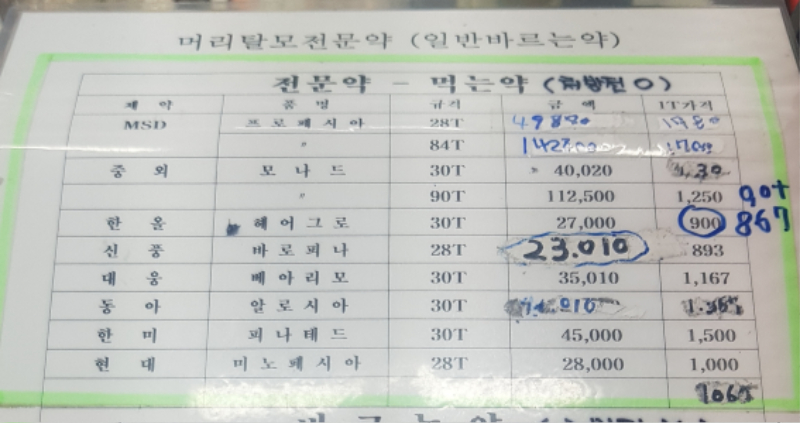 머리탈모전문약 (일반바르는약)
전문약 - 먹는약 (처방전 O)
제 약 품 명 규격 금 액 1T가격
MSD 프로페시아 28T 1980
〃 84T
중 외 모 나 드 30T 40,020
〃 90T 112,500 1,250 90t
한 올 헤어그로 30T 27,000 900 867
신 풍 바로피나 28T 23.010 893
대 웅 베아리모 30T 35,010 1,167
동 아 알로시아 30T
한 미 피나테드 30T 45,000 1,500
현 대 미노페시아 28T 28,000 1,000